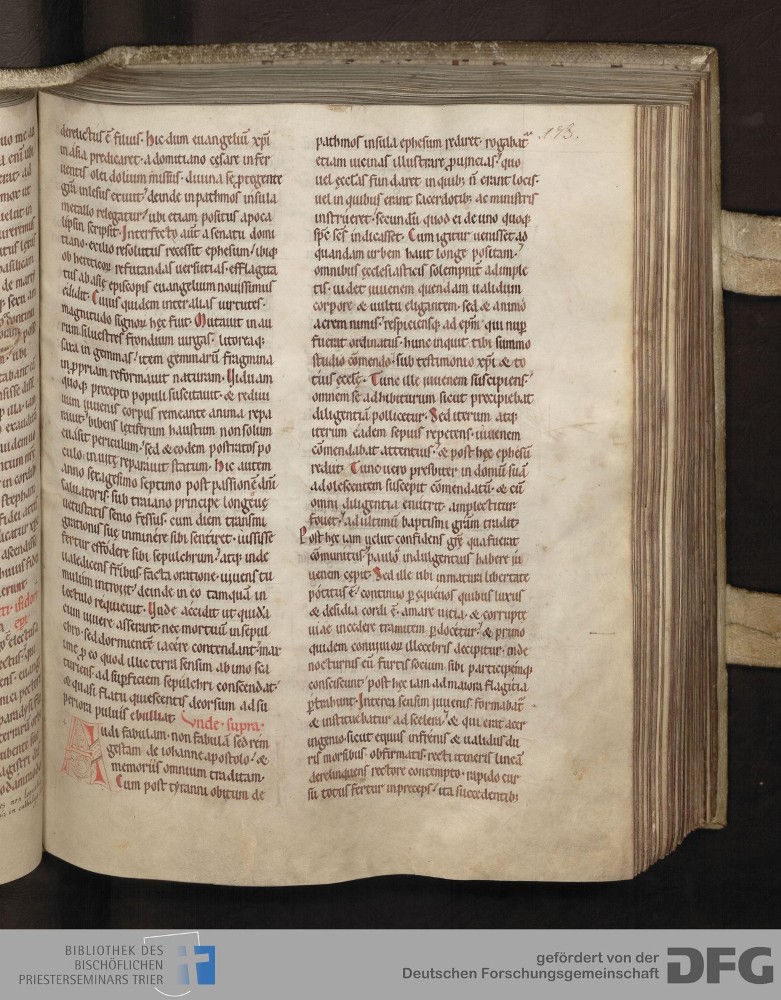 derelictus ē filius. Hic dum euangeliū xp̄i
in asia predicaret. a domitiano cesare in fer
uentis olei dolium missus. diuina se ꝓtegente
gr̄a inlesus exiuit. deinde in pathmos insula
metallo relegatur. ubi etiam positus apoca
lipsin scripsit. Interfecto aūt a senatu domi
tiano. exilio resolutus recessit ephesum. ibiq;
ob hereticor refutandas uersutias. efflagita
tus ab asię episcopis euangelium nouissimus
edidit. Cuius quidem inter alias uirtutes.
magnitudo signor hęc fuit. Mutauit in au
rum siluestres frondium uirgas. litoreaq;
saxa in gemmas. item gemmarū fragmina
in ꝓpriam reformauit naturam. Uiduam
quoq; precepto populi suscitauit. & rediui
uum iuuenis corpus remeante anima repa
rauit. bibens letiferum haustum non solum
euasit periculum. sed & eodem postratos po
culo. in uitę reparauit statum. Hic autem
anno setagesimo septimo post passionē dn̄i
saluatoris. sub traiano principe longęuę
uetustatis senio fessus. cum diem transmi
grationis suę inminere sibi sentiret. iussisse
fertur effodere sibi sepulchrum. atq; inde
ualedicens frībus facta oratione. uiuens tu
mulum introiit. deinde in eo tamquam in
lectulo requieuit. Unde accidit ut quidā
eum uiuere asserant. nec mortuū in sepul
chro. sed dormientē iacere contendant. mar
ime ꝓ eo quod illic terra sensim ab imo sca
turiens. ad suꝑficiem sepulchri conscendat.
& quasi flatu quiescentis deorsum ad su
periora puluis ebulliat. Vnde supra.
Audi fabulam. non fabulā sed rem
gestam de iohanne apostolo. &
memoriis omnium traditam.
Cum post tyranni obitum de
173.
pathmos insula ephesum rediret. rogabat̄
etiam uicinas illustrare ꝓuincias. quo
uel ecclas fundaret in quib; n̄ erant locis.
uel in quibus erant sacerdotib; ac ministris
instrueret. secundū quod ei de uno quoq;
sp̄c sc̄s indicasset. Cum igitur uenisset ad
quandam urbem haut longe positam.
omnibus ecclesiasticis solempnit adimple
tis. uidet iuuenem quendam ualidum
corpore & uultu eligantem. sed & animo
acrem nimis. respiciensq; ad ep̄m. qui nuꝑ
fuerat ordinatus. hunc inquit tibi summo
studio cōmendo. sub testimonio xp̄i & to
tius ecclę. Tunc ille iuuenem suscipiens.
omnem se adhibiturum sicut precipiebat
diligentiā pollicetur. Sed iterum atq;
iterum eadem sepius repetens. iuuenem
cōmendabat attentius. & post hęc ephesū
rediit. Tunc uero presbiter in domū suā
adolescentem suscepit cōmendatū. & eū
omni diligentia enutrit. amplectitur.
fouet. ad ultimū baptismi gr̄am tradit.
Post hęc iam uelut confidens grę qua fuerat
cōmunitus. paulo indulgentius habere iu
uenem cepit. Sed ille ubi inmatura libertate
potitus ē. continuo ꝑ equeuos quibus luxus
& desidia cordi ē. amare uitia. & corrupte
uiae incedere tramitem ꝑdocetur. & primo
quidem conuiuior illecebris decipitur. inde
nocturnis eū furtis socium sibi participemq;
consciscunt. post hęc iam ad maiora flagitia
ꝑtrahunt. Interea sensim iuuenis formabat̄
& instituebatur ad scelera. & qui erat acer
ingenio. sicut equus infrenis & ualidus du
ris morsibus obfirmatis. recti itineris lineā
derelinquens rectore contempto. rapido cur
su totus fertur in preceps. ita succedentib;
BIBLIOTHEK DES
BISCHÖFLICHEN
PRIESTERSEMINARS TRIER
gefördert von der
Deutschen Forschungsgemeinschaft
DFG